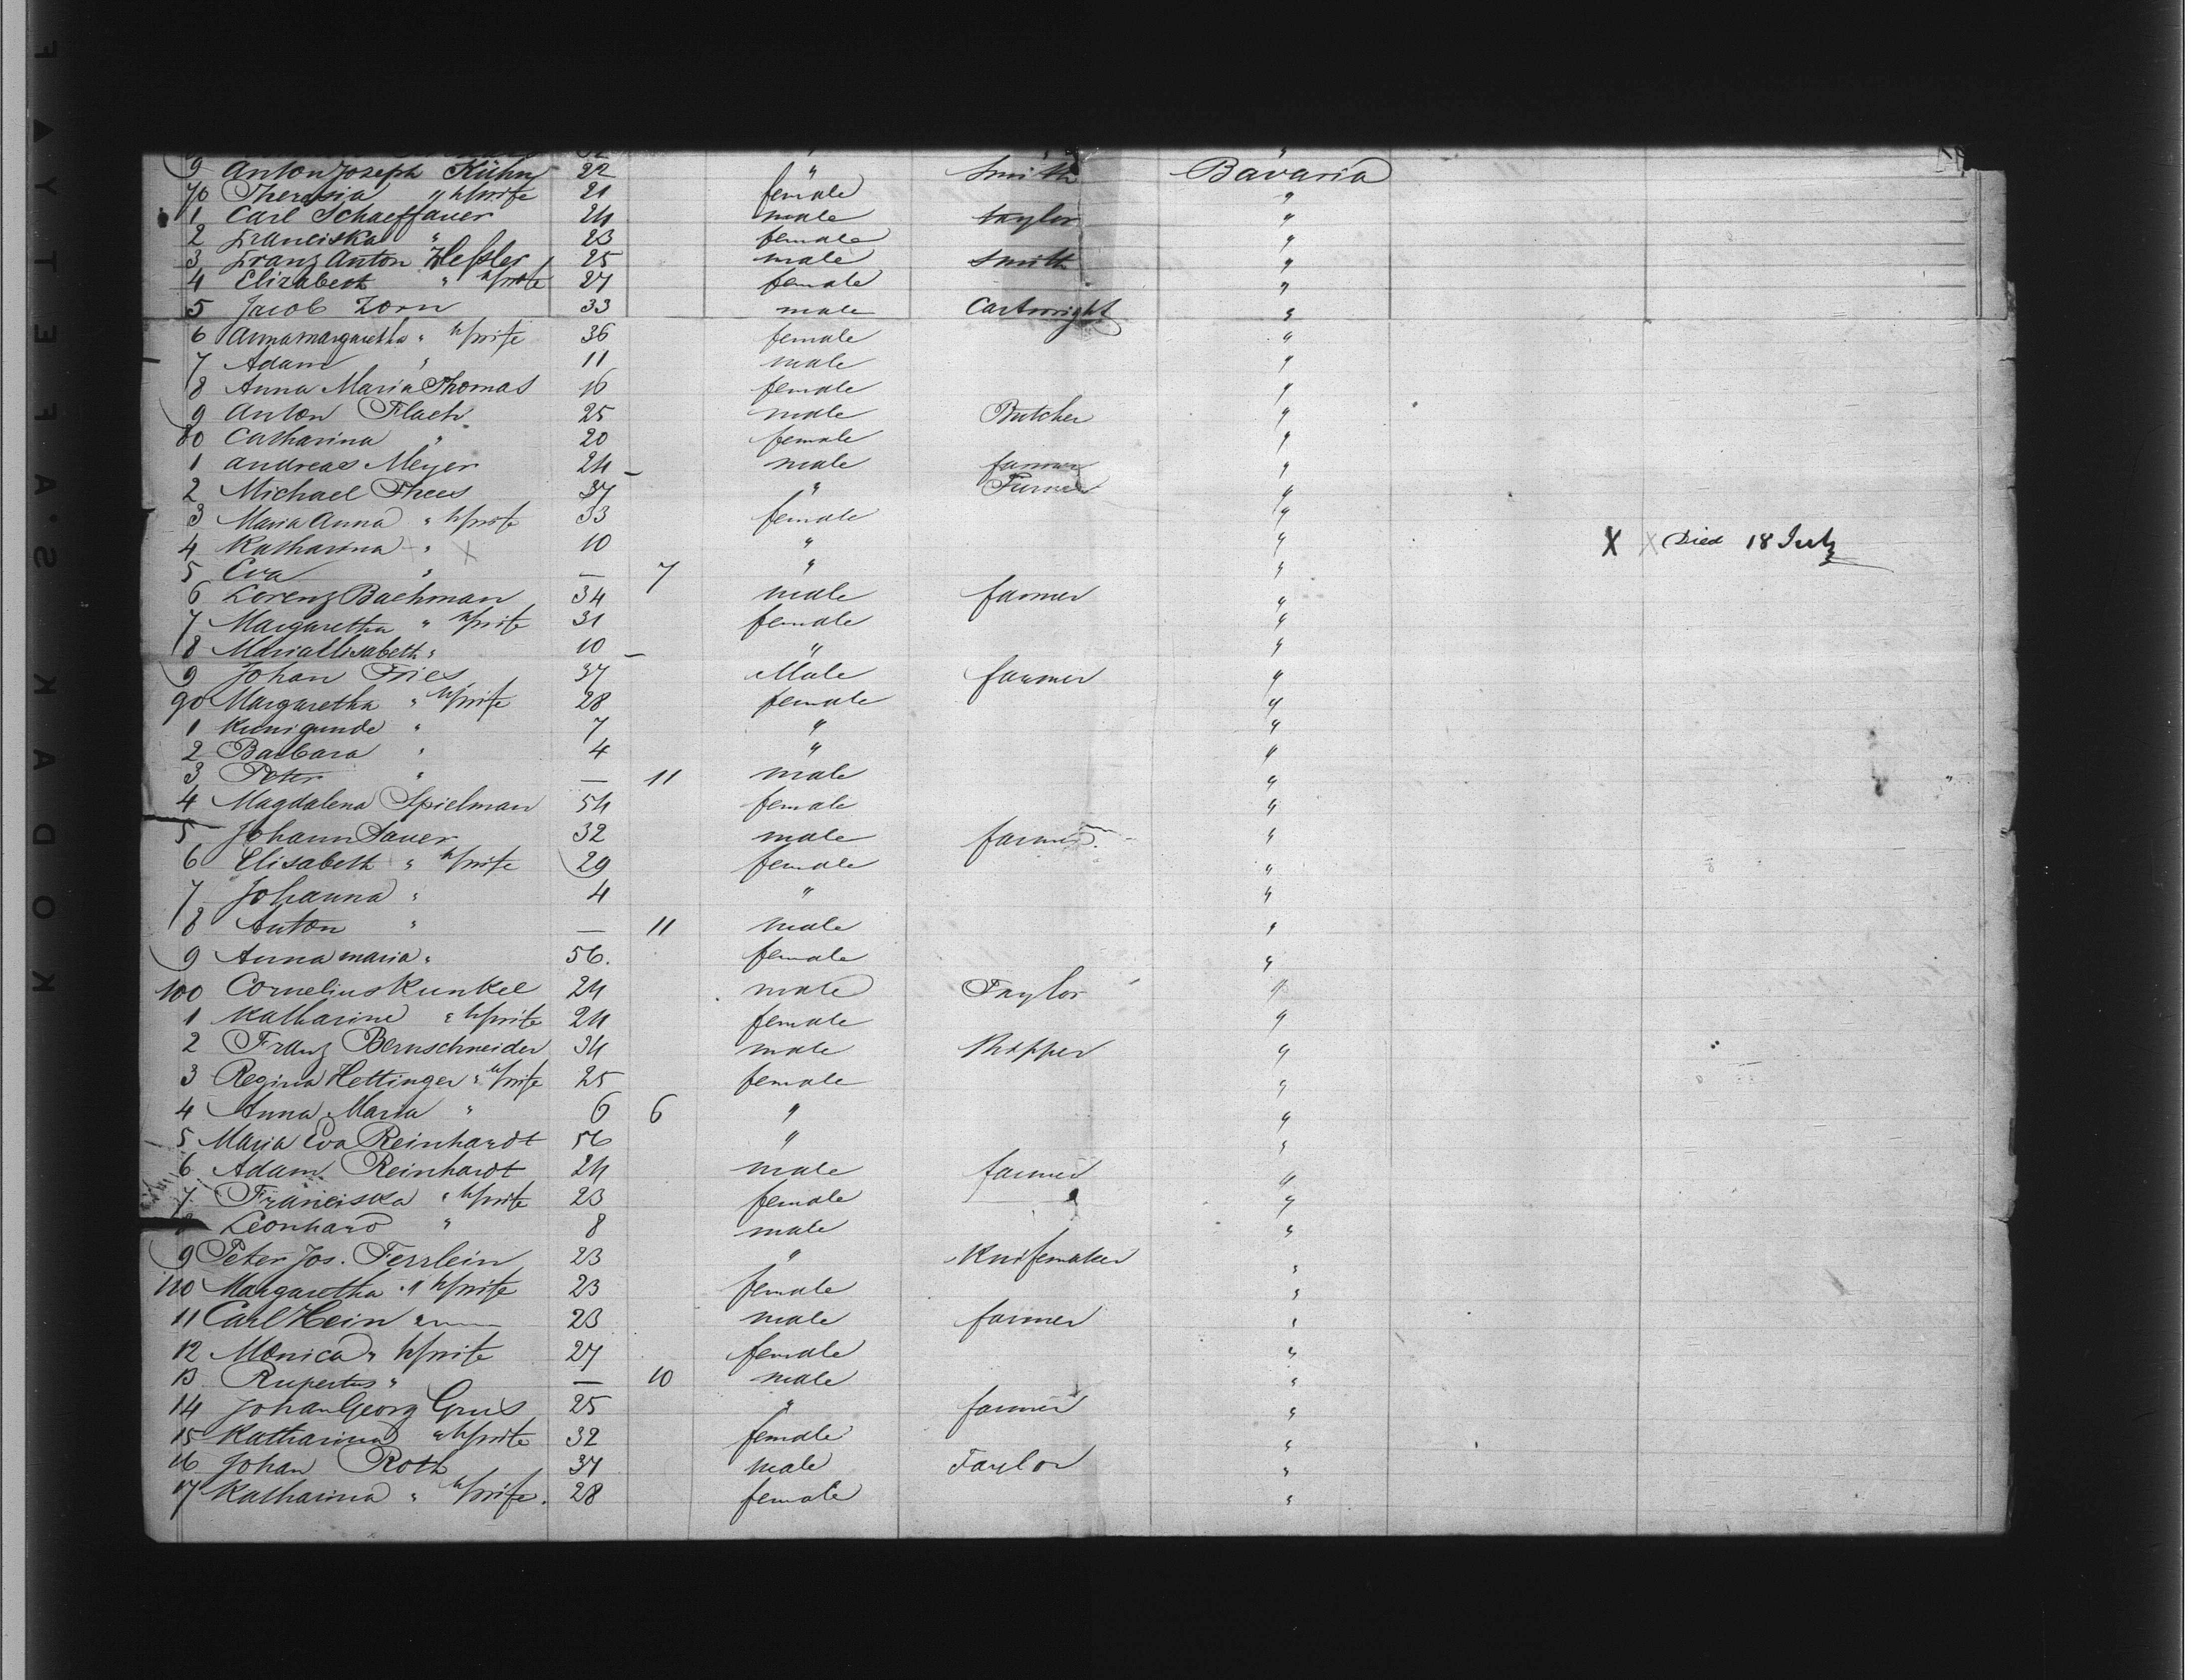 9 Anton Joseph Kühn 22 " Smith Bavaria
70 Theresia " h/wife 21 female "
1 Carl Schaeffauer 24 male taylor "
2 Franciska " 23 female "
3 Franz Anton Heßler 25 male Smith "
4 Elizabeth " h/wife 27 female "
5 Jacob Zorn 33 male Cartwright "
6 Annamargaretha " h/wife 36 female "
7 Adam " 11 male "
8 Anna Maria Thomas 16 female "
9 Anton Flach 25 male Butcher "
80 Catharina " 20 female "
1 Andreas Meyer 24 male farmer "
2 Michael Thees 37 " "
3 Maria Anna " h/wife 33 female "
4 Katharina " X 10 " " X X Died 18 July
5 Eva " — 7 " "
6 Lorenz Bachman 34 male farmer "
7 Margaretha " h/wife 31 female "
8 Maria Elisabeth " 10 " "
9 Johan Fries 37 Male farmer "
90 Margaretha " h/wife 28 female "
1 Kunigunde " 7 " "
2 Barbara " 4 " "
3 Peter " — 11 male "
4 Magdalena Spielman 54 female "
5 Johann Sauer 32 male farmer "
6 Elisabeth " h/wife 29 female "
7 Johanna " 4 " "
8 Anton " — 11 male "
9 Anna maria " 56. female "
100 Cornelius Kunkel 24 male Taylor "
1 Katharine " h/wife 24 female "
2 Franz Bernschneider 34 male "
3 Regina Hettinger " h/wife 25 female "
4 Anna Maria " 6 6 " "
5 Maria Eva Reinhardt 56 " "
6 Adam Reinhardt 24 male farmer "
7 Franciska " h/wife 23 female "
8 Leonhard " 8 male "
9 Peter Jos. Ferrlein 23 " Knifemaker "
110 Margaretha " h/wife 23 female "
11 Carl Hein 23 male farmer "
12 Monica " h/wife 27 female "
13 Rupertus " — 10 male "
14 Johan Georg Grus 25 " farmer "
15 Katharina " h/wife 32 female "
16 Johan Roth 37 male Taylor "
17 Katharina " h/wife. 28 female "
KODAK·SAFETY